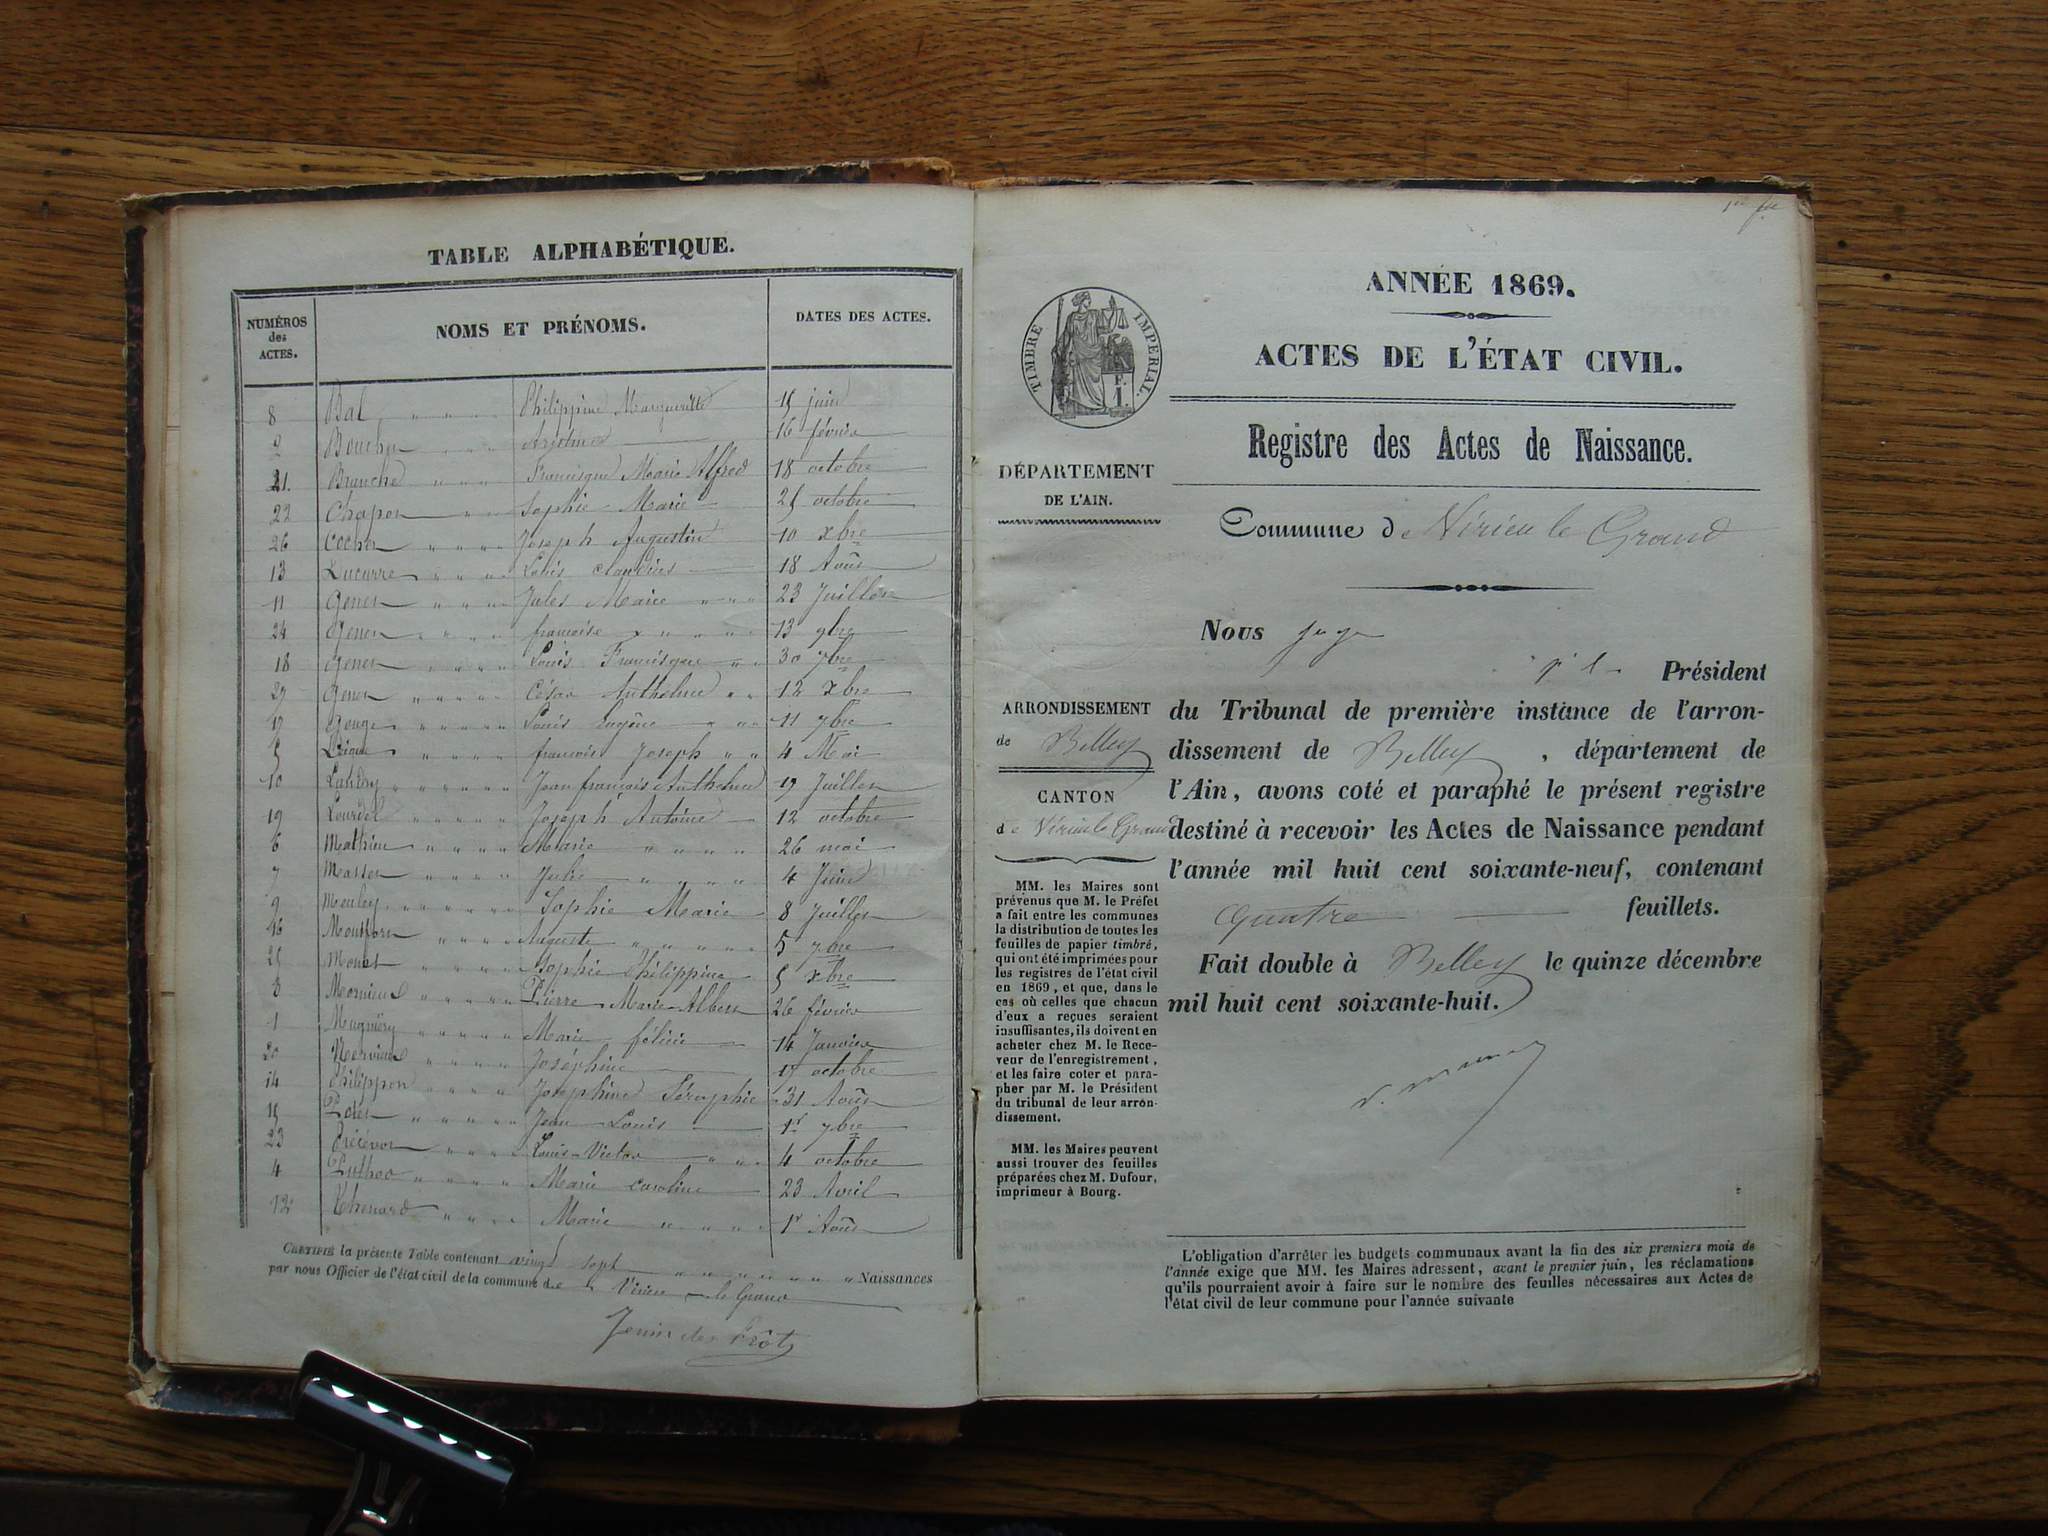 TABLE ALPHABÉTIQUE.
NUMÉROS
des
ACTES.
NOMS ET PRÉNOMS.
DATES DES ACTES.
8 Bal " " " " Philippine Marguerite 15 juin
2 " " " 16 février
21. Branche " " " Francisque Marie Alfred 18 octobre
22 Chapon " " Sophie Marie 25 octobre
26 Cochet " " " " Joseph Augustin 10 xbre
13 Ducurre " " " " Louis Claudius 18 Août
11 Genet " " " " Jules Marie " " " 23 Juillet
24 Genet " " " " françoise " " " " " 13 9bre
18 Genet " " " " Louis Francisque " " 30 7bre
27 Genet " " " " " César Anthelme " " 12 xbre
17 Gouge " " " " " Louis Eugène " " " 11 7bre
5 " " " " " françois Joseph " " 4 Mai
10 " " " " " " Jean françois Anthelme 19 Juillet
19 Lourdel " " " " " Joseph Antoine 12 octobre
6 Mathieu " " " " " Marie " " " " 26 mai
7 Masson " " " " " Julie " " " " 4 Juin
9 " " " " " " Sophie Marie 8 Juillet
16 Montfort " " " " Auguste " " " " " 5 7bre
25 " " " " Sophie Philippine 5 xbre
3 " " " " " Pierre Marie Albert 26 février
1 " " " " " Marie félicie 14 Janvier
20 " " " " Joséphine octobre
14 Philippon " " " " Joséphine Séraphie 31 Août
15 " " " " " Jean Louis 1er 7bre
23 " " " " Louis-Victor " " " 4 octobre
4 " " " " " Marie Caroline 23 Avril
12 Thenard " " " " Marie " " " " " 1er Août
CERTIFIÉ la présente Table contenant vingt sept " " " " " " " " Naissances
par nous Officier de l'état civil de la commune de Virieu le Grand
1er fet
TIMBRE IMPÉRIAL.
ANNÉE 1869.
ACTES DE L'ÉTAT CIVIL.
Registre des Actes de Naissance.
DÉPARTEMENT
DE L'AIN.
Commune de Virieu le Grand
Nous juge
Président
du Tribunal de première instance de l'arron-
dissement de Belley, département de
l'Ain, avons coté et paraphé le présent registre
destiné à recevoir les Actes de Naissance pendant
l'année mil huit cent soixante-neuf, contenant
quatre feuillets.
Fait double à Belley le quinze décembre
mil huit cent soixante-huit.
ARRONDISSEMENT
de Belley
CANTON
de Virieu le Grand
MM. les Maires sont
prévenus que M. le Préfet
a fait entre les communes
la distribution de toutes les
feuilles de papier timbré,
qui ont été imprimées pour
les registres de l'état civil
en 1869, et que, dans le
cas où celles que chacun
d'eux a reçues seraient
insuffisantes, ils doivent en
acheter chez M. le Rece-
veur de l'enregistrement,
et les faire coter et para-
pher par M. le Président
du tribunal de leur arron-
dissement.
MM. les Maires peuvent
aussi trouver des feuilles
préparées chez M. Dufour,
imprimeur à Bourg.
L'obligation d'arrêter les budgets communaux avant la fin des six premiers mois de
l'année exige que MM. les Maires adressent, avant le premier juin, les réclamations
qu'ils pourraient avoir à faire sur le nombre des feuilles nécessaires aux Actes de
l'état civil de leur commune pour l'année suivante